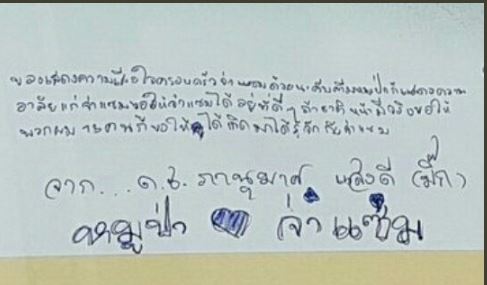 ขอแสดงความเสียใจครอบครัวจ่าแซมด้วยนะคับทีมหมูป่าก็แสดงความ
อาลัยแก่จ่าแซมขอให้จ่าแซมได้อยู่ที่ดีๆถ้าชาติหน้ามีจริงขอให้
พวกผม คนก็ขอให้ได้เกิดมาได้รู้จักกับจ่าแซม
จาก... ด.ช. ภานุมาศ แสงดี (มิ๊ก)
หมูป่า จ่าแซม